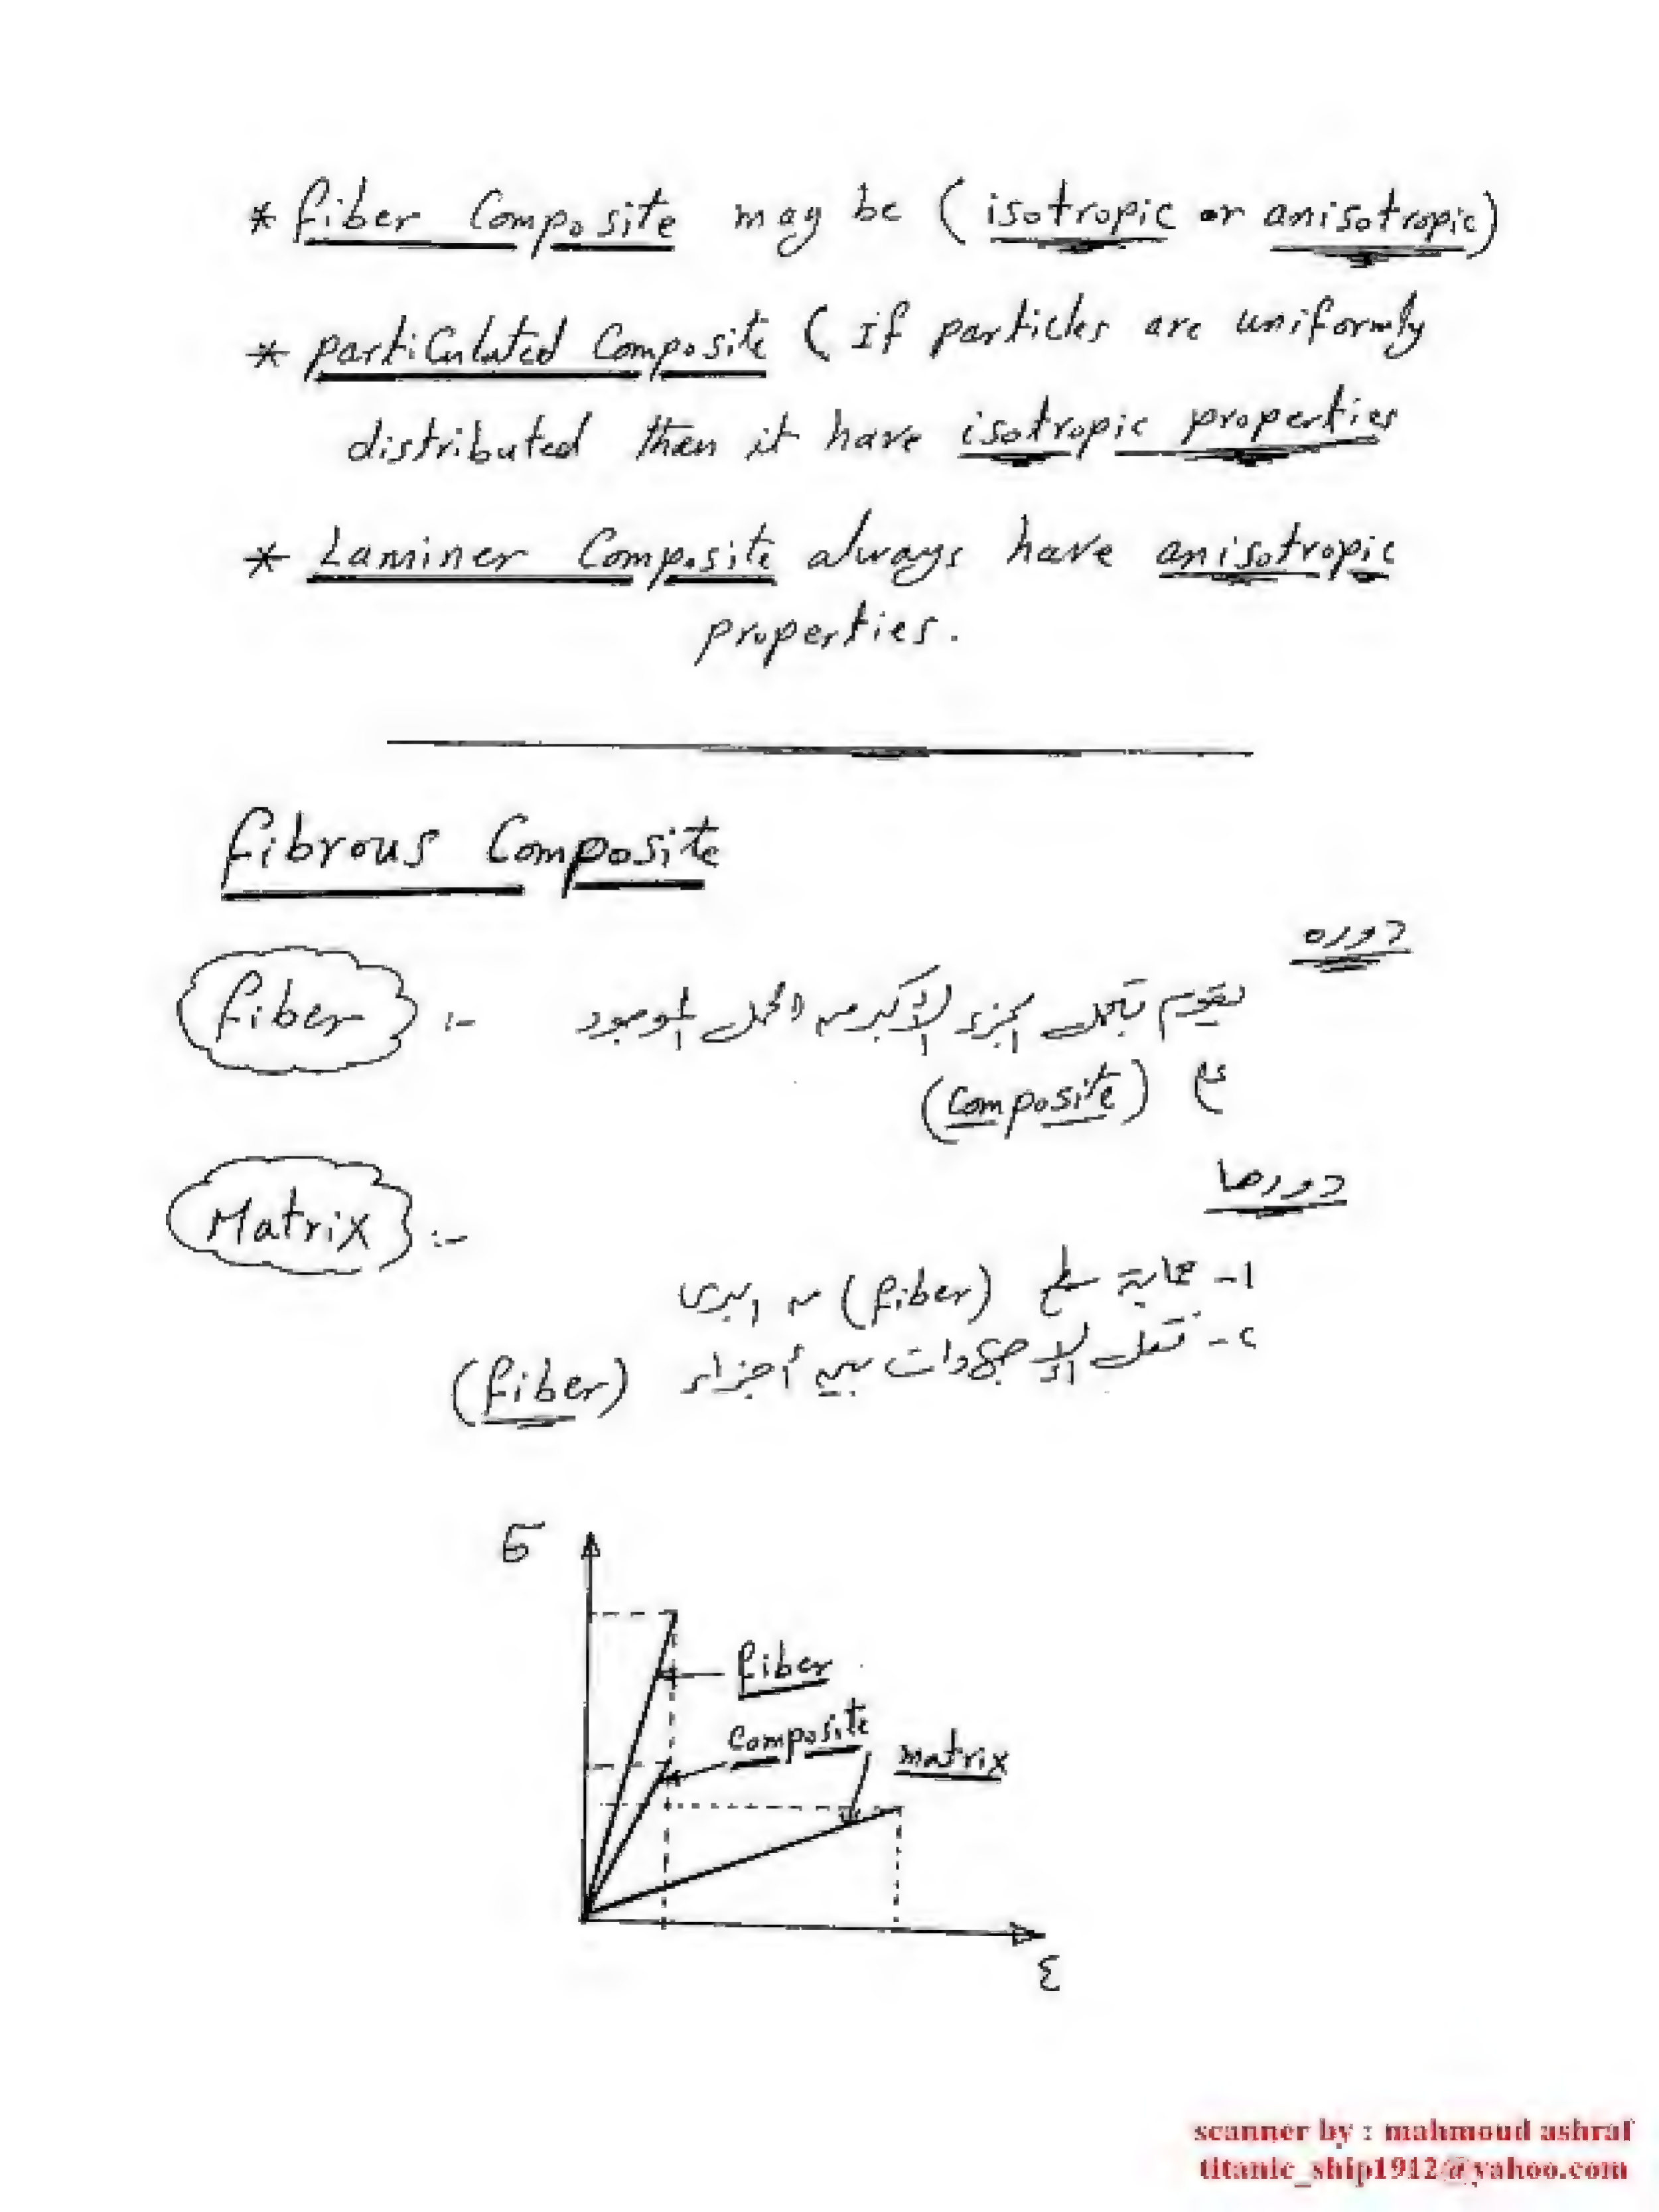 * fiber Composite may be (isotropic or anisotropic)
* particulated Composite ( If particles are uniformly
distributed then it have isotropic properties
* Laminer Composite always have anisotropic
properties.
fibrous Composite
دوره
fiber :- يقوم بتحمل الجزء الأكبر من الحمل الموجود
في (Composite)
دورها
Matrix :-
١- حماية سطح (fiber) من البرى
٢- نقل الاجهادات بين أجزاء (fiber)
σ
fiber
Composite
matrix
ε
scanner by : mahmoud ashraf
titanic_ship1912@yahoo.com